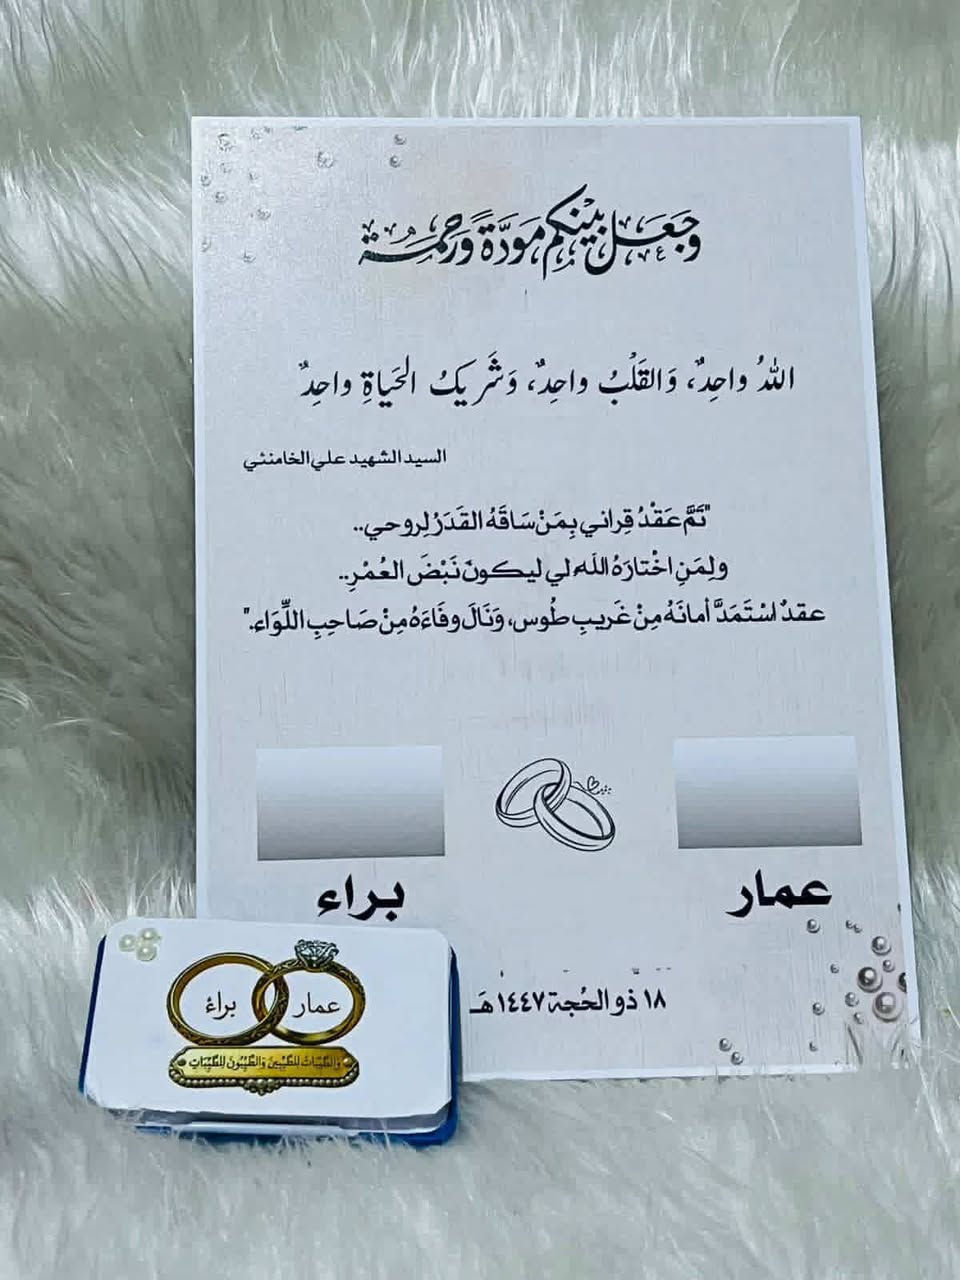 وَجَعَلَ بَيْنَكُم مَوَدَّةً وَرَحْمَةً
اللهُ واحِدٌ، وَالقَلْبُ واحِدٌ، وَشَريكُ الحَياةِ واحِدٌ
السيد الشهيد علي الخامنئي
"تَمَّ عَقْدُ قِراني بِمَنْ سَاقَهُ القَدَرُ لِروحي..
ولِمَنِ اخْتارَهُ اللَه لي ليكونَ نَبْضَ العُمْرِ..
عقدٌ اسْتَمَدَّ أمانَهُ مِنْ غَريبِ طُوس، وَنَالَ وفَاءَهُ مِنْ صَاحِبِ اللِّوَاء."
عمار
براء
١٨ ذو الحُجة ١٤٤٧هَـ
عمار
براء
والطَّيِّبَاتُ لِلطَّيِّبِينَ وَالطَّيِّبُونَ لِلطَّيِّبَاتِ